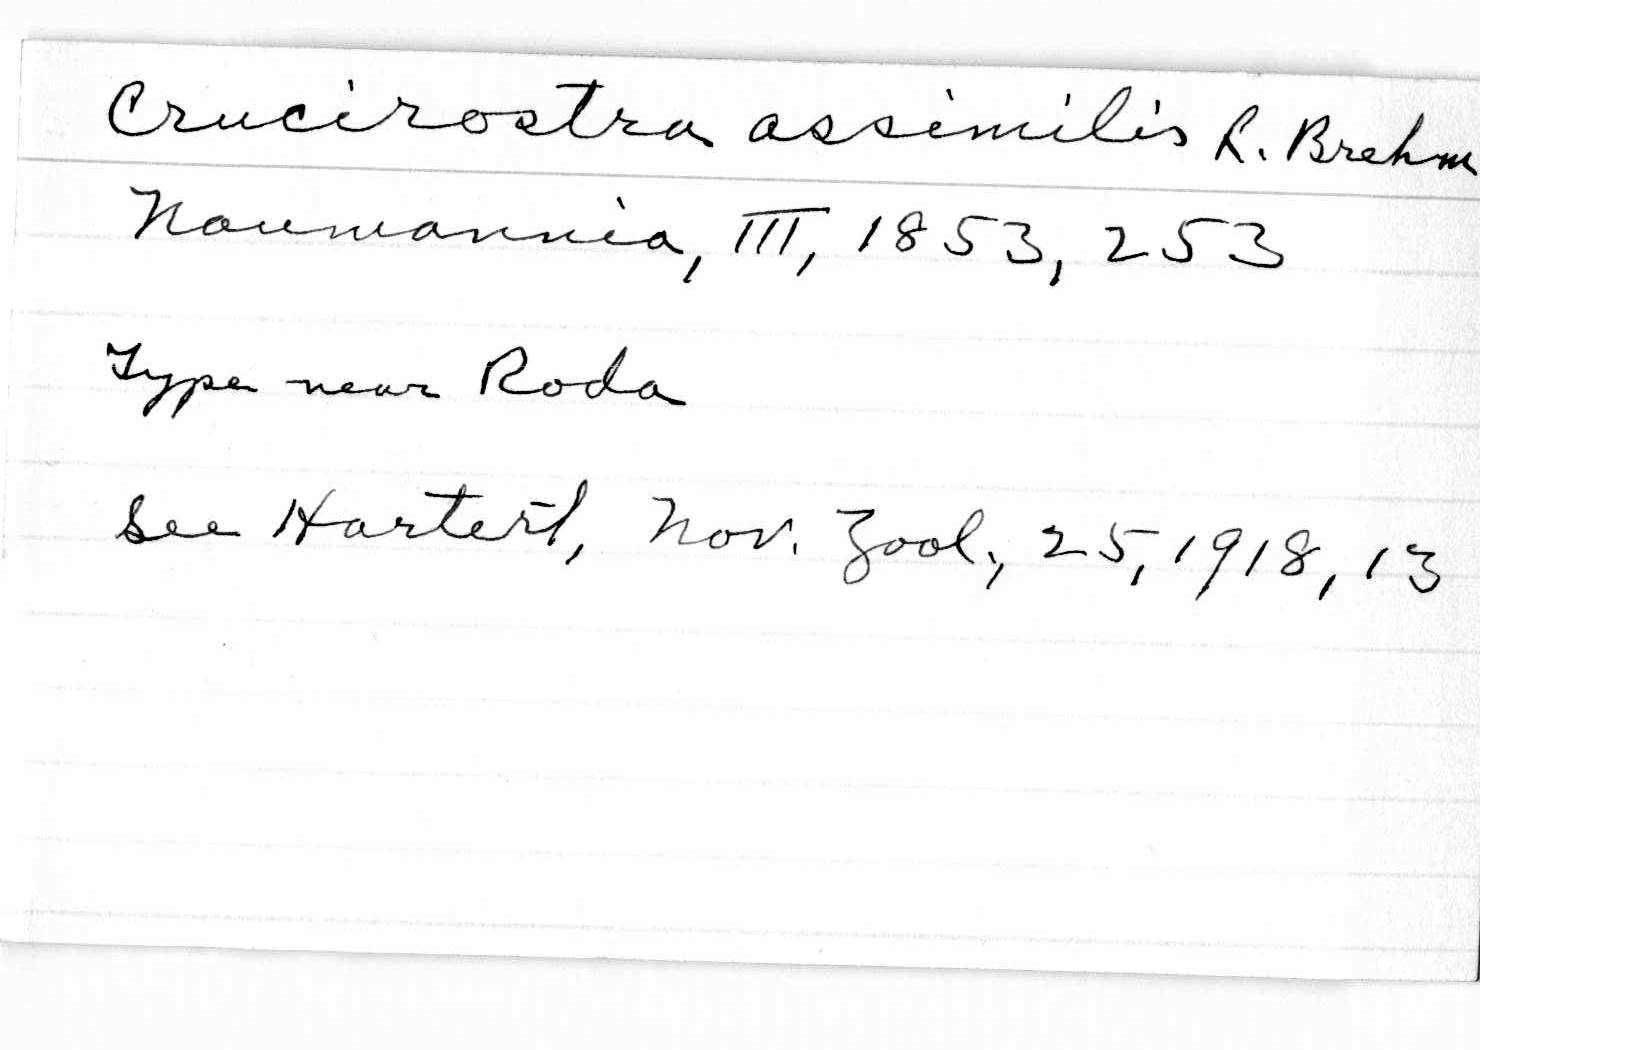 Crucirostra assimilis R. Brehm
Naumannia, III, 1853, 253
Type near Roda
See Hartert, Nov. Zool., 25, 1918, 13